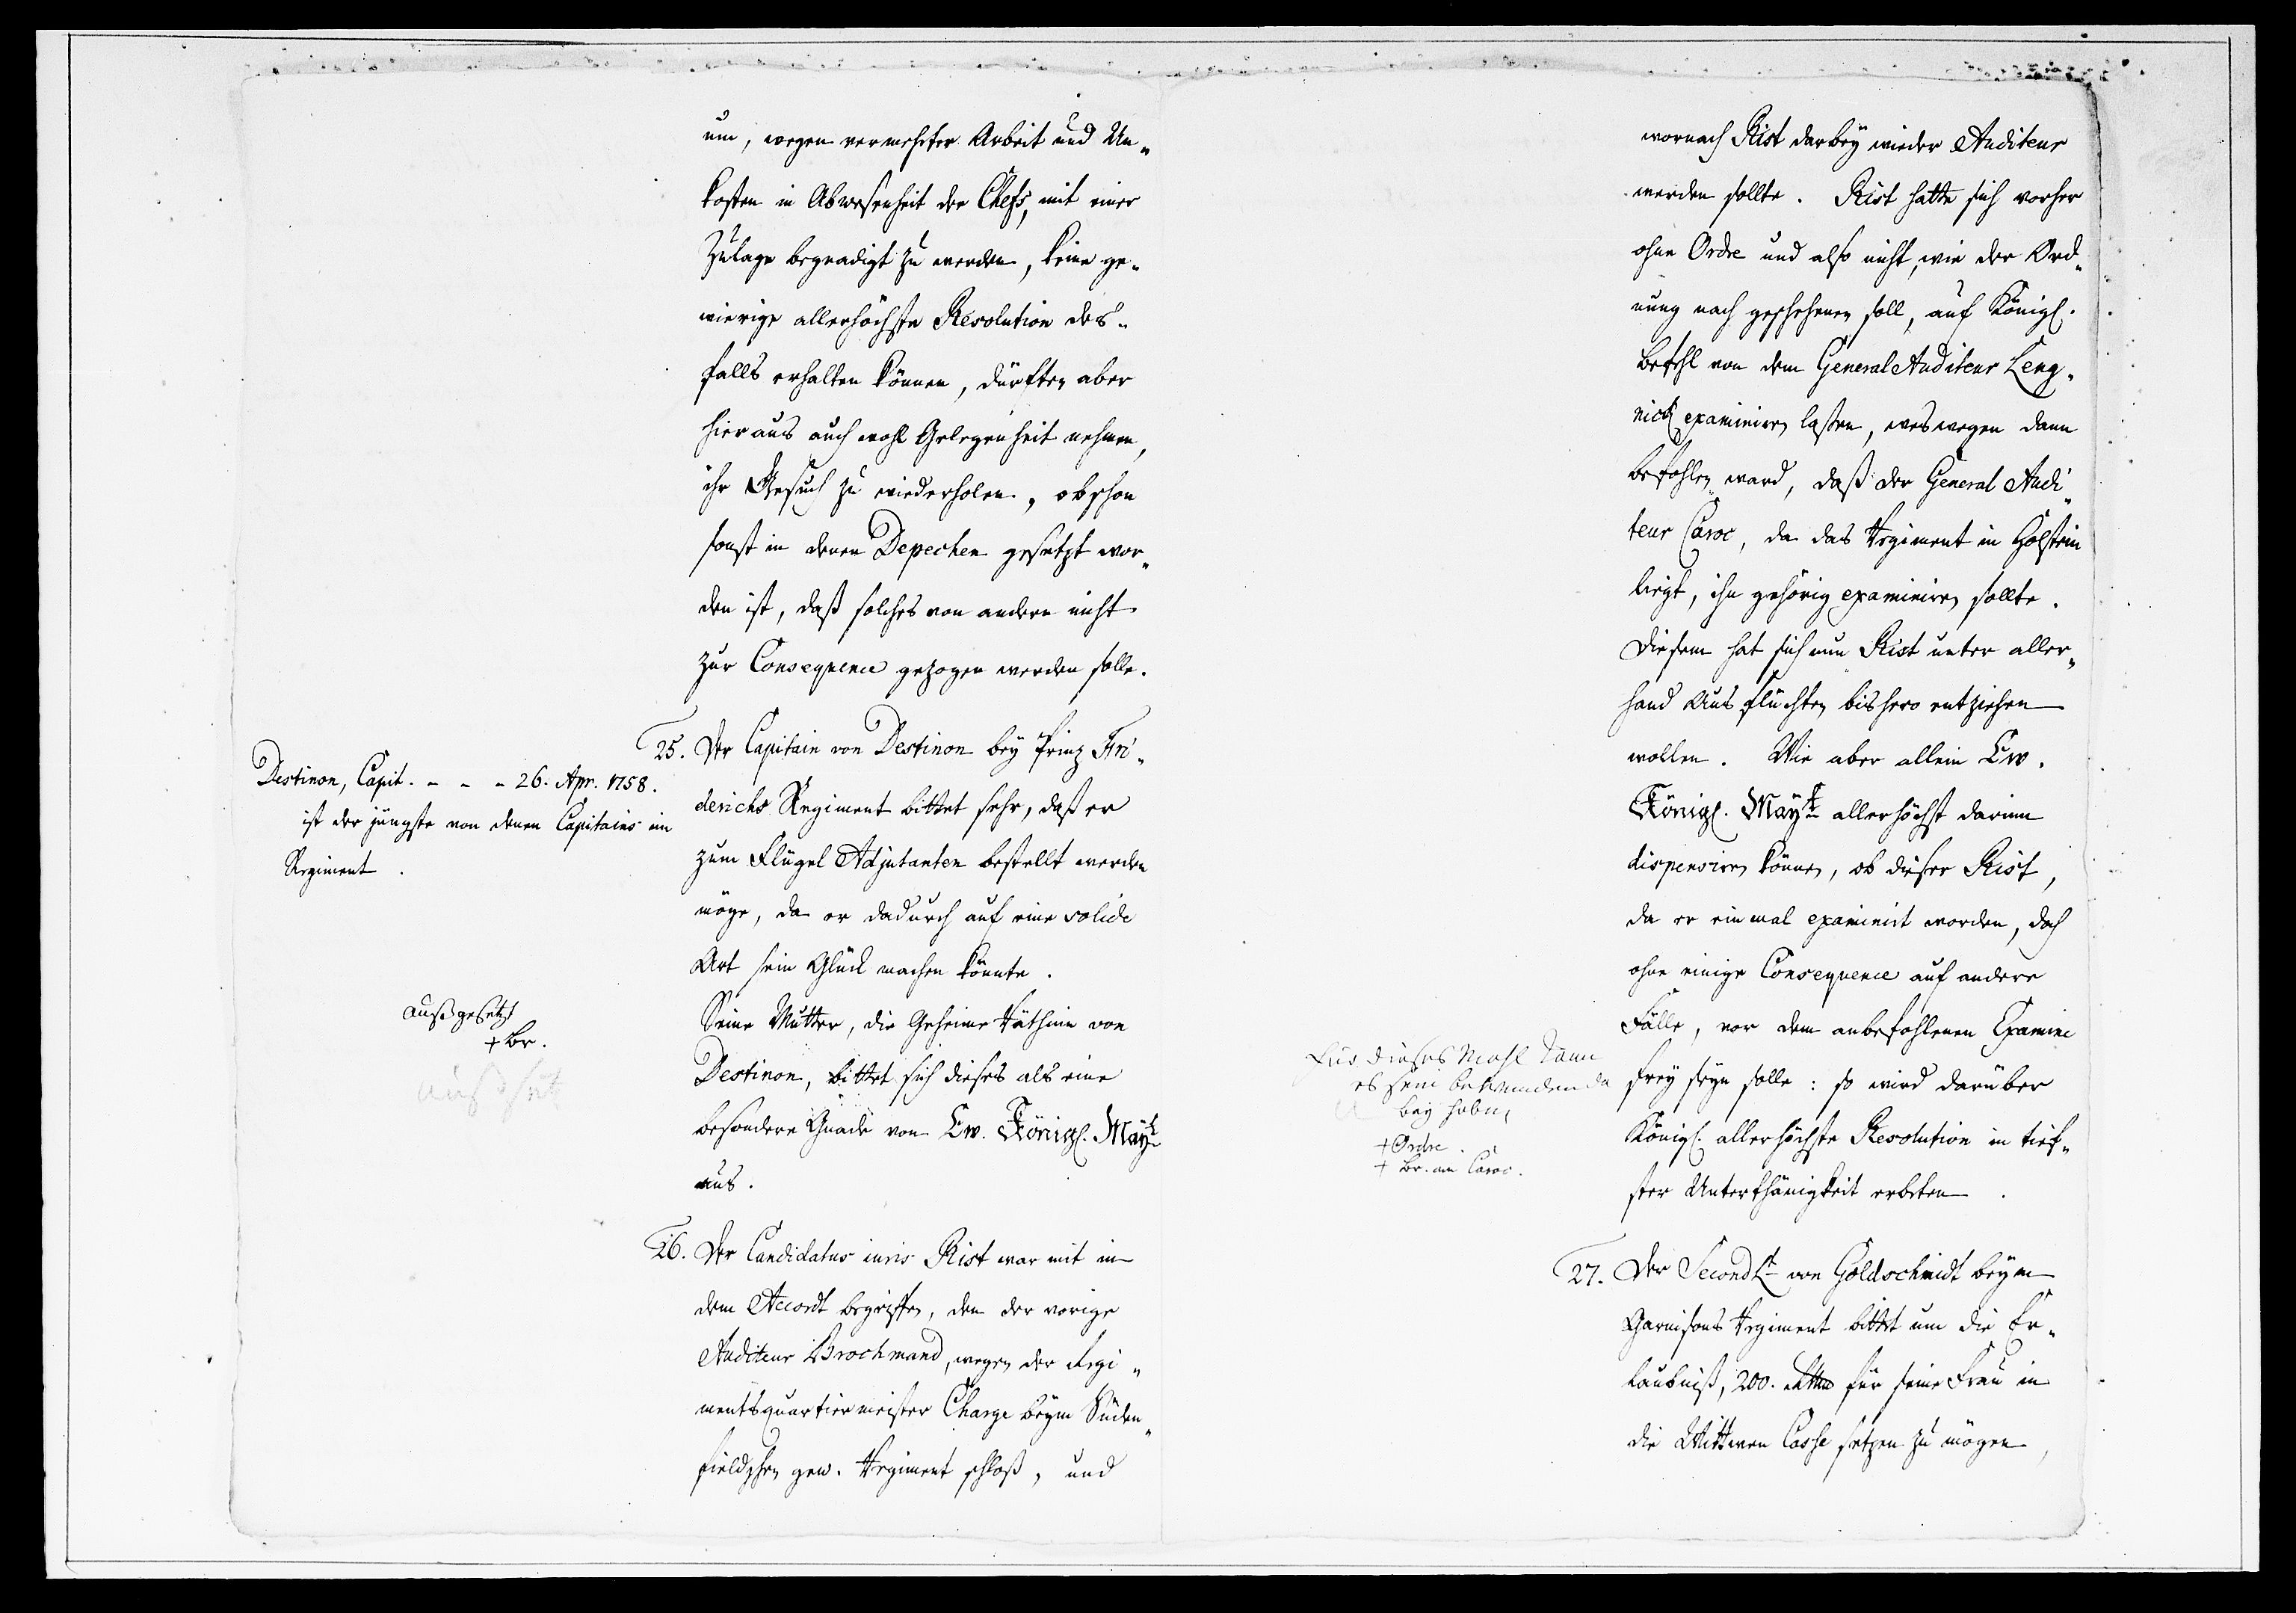 um, wegen vermehrter Arbeit und Un„
kosten in Abwesenheit der Chefs, mit einer
Zulage begnadigt zu werden, keine ge„
wierige allerhöchste Resolution des„
falls erhalten können, dürften aber
hieraus auch wohl Gelegenheit nehmen,
ihr Gesuch zu wiederholen, obschon
sonst in denen Depechen gesetzt wor„
den ist, daß solches von andern nicht
zur Consequence gezogen werden solle.
25. Der Capitain von Destinon bey Prinz Fri„
derichs Regiment bittet sehr, daß er
zum Flügel Adjutanten bestellt werden
möge, da er dadurch auf eine solide
Art sein Glück machen könnte.
Seine Mutter, die Geheime Räthinn von
Destinon, bittet sich dieses als eine
besondere Gnade von Ew. Königl. Mayt
aus.
Destinon, Capit. - - - 26. Apr. 1758.
ist der jüngste von denen Capitains im
Regiment.
ausgesetzt
+ Br.
26. Der Candidatus iuris Rist war mit in
dem Accordt begriffen, den der vorige
Auditeur Brochmand, wegen der Regi„
mentsquartiermeister Charge beym Süden„
fieldschen gew. Regiment schloß, und
wornach Rist darbey wieder Auditeur
werden sollte. Rist hatte sich vorher
ohne Ordre und also nicht, wie der Ord„
nung nach geschehenen soll, auf Königl.
Befehl von dem General Auditeur Leng„
nick examiniren laßen, weswegen dann
befohlen ward, daß der General Audi„
teur Caroc, da das Regiment in Holstein
liegt, ihn gehörig examiniren sollte.
Diesem hat sich nun Rist unter aller„
hand Ausflüchten bishero entziehen
wollen. Wie aber allein Ew.
Königl. Maytt allerhöchst darinn
dispensiren können, ob dieser Rist,
da er einmal examinirt worden, doch
ohne einige Consequence auf andere
Fälle, vor dem anbefohlenen Examine
frey seyn solle: so wird darüber
Königl. allerhöchste Resolution in tief„
ster Unterthänigkeit erbeten.
Für dieses Mahl kann
es sein bewenden da
bey haben
+ Ordre.
+ Br. an Caroc.
27. Der Second Lt von Goldschmidt beym
Garnisons Regiment bittet um die Er„
laubniß, 200. für seine Frau in
die Wittwen Casse setzen zu mögen,